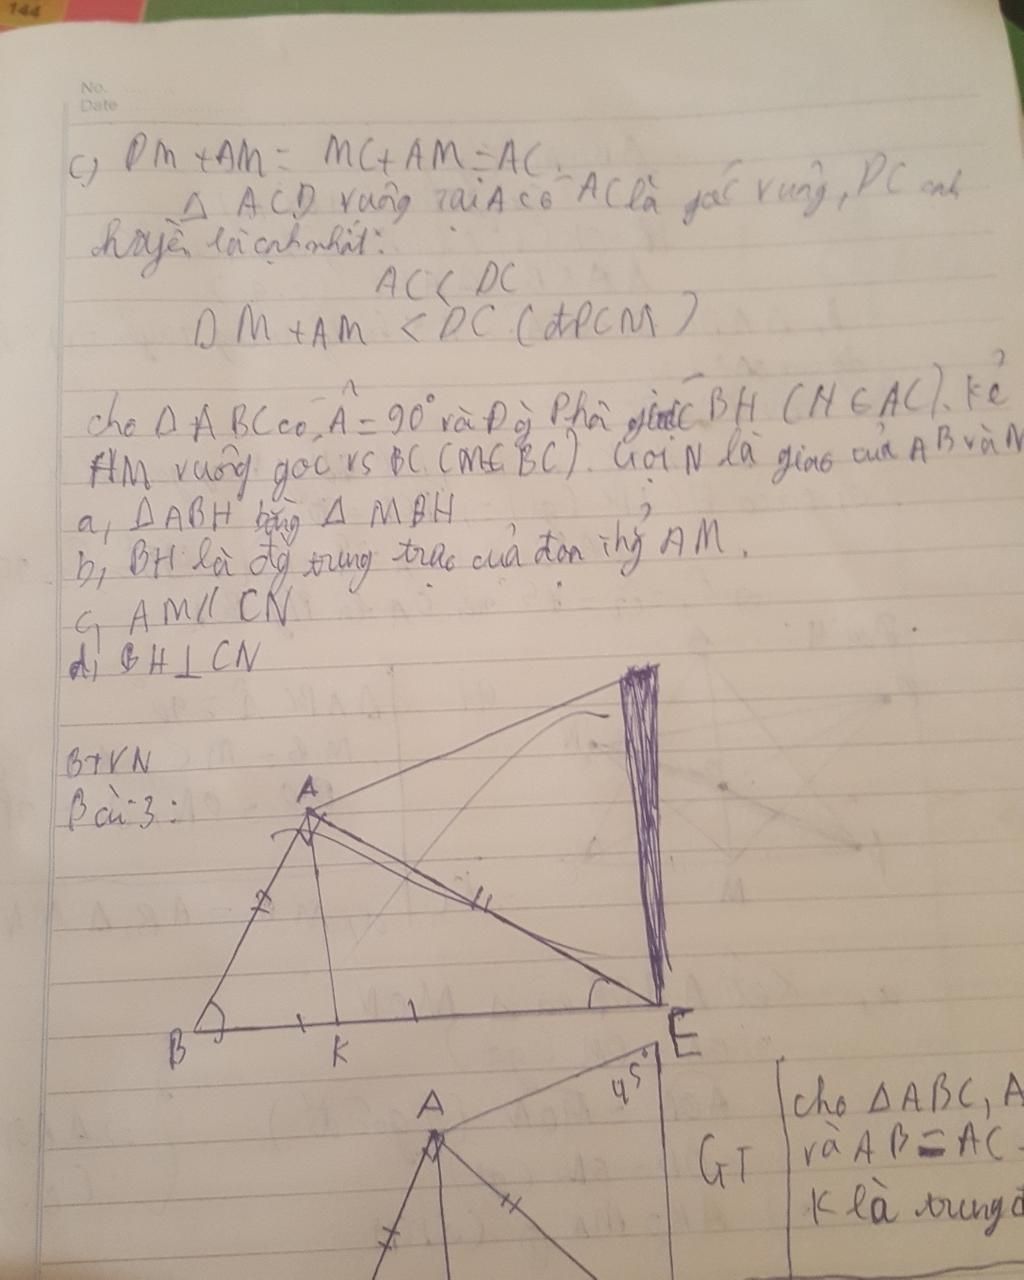 144
No.
Date
c) DM + AM = MC + AM = AC.
Δ ACD vuông tại A có AC là góc vuông, DC cạnh
huyền là cạnh nhất:
AC < DC
DM + AM < DC (đPCM)
cho Δ ABC có Â = 90° và Đg Phân giác BH (H ∈ AC). Kẻ
HM vuông góc vs BC (M ∈ BC). Gọi N là giao của AB và
a, Δ ABH bằng Δ MBH
b, BH là đg trung trực của đoạn thẳng AM.
c, AM // CN
d, BH ⊥ CN
BTVN
Bài 3:
A
B
K
E
A
45°
GT
cho Δ ABC, A
và AB = AC
K là trung đ